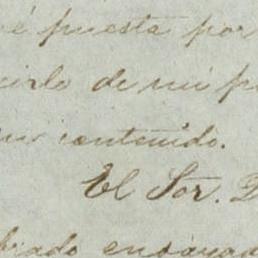 é puesta por
cirlo de mi p
contenido.
El Sor. D
brado ensayad